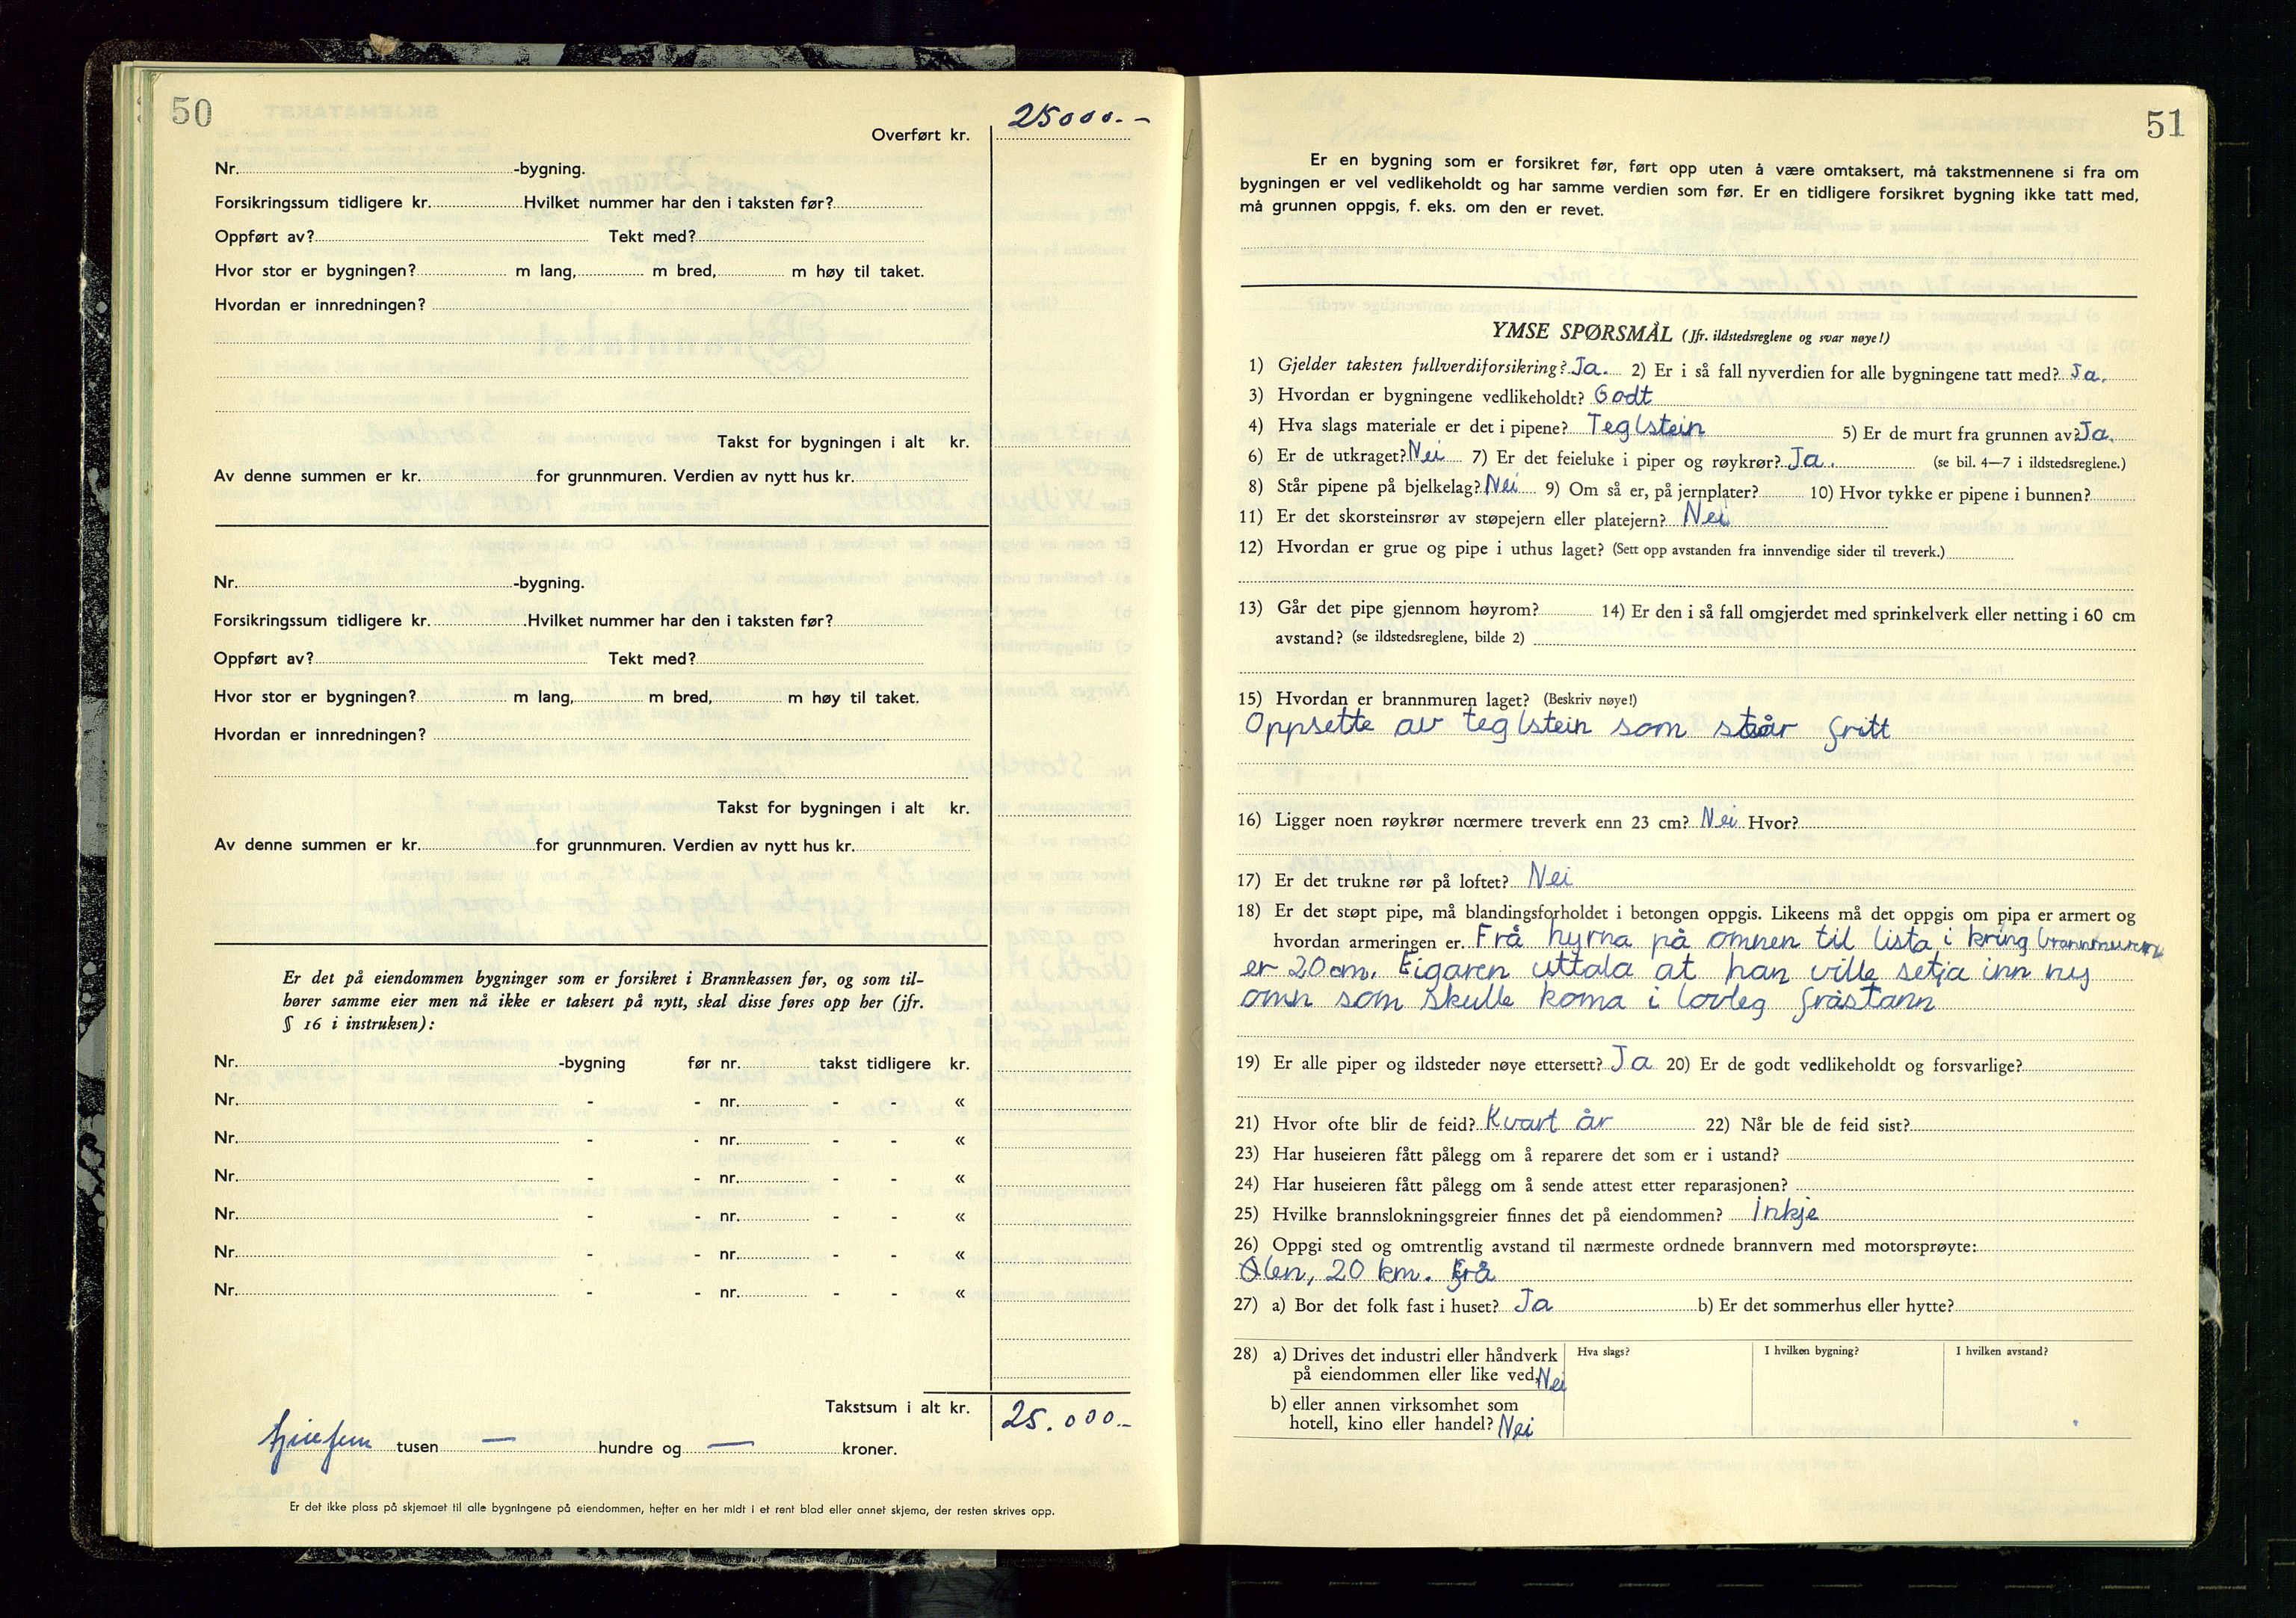 50
Overført kr. 25000.-
Nr. -bygning.
Forsikringssum tidligere kr. Hvilket nummer har den i taksten før?
Oppført av? Tekt med?
Hvor stor er bygningen? m lang, m bred, m høy til taket.
Hvordan er innredningen?
Takst for bygningen i alt kr.
Av denne summen er kr. for grunnmuren. Verdien av nytt hus kr.
Nr. -bygning.
Forsikringssum tidligere kr. Hvilket nummer har den i taksten før?
Oppført av? Tekt med?
Hvor stor er bygningen? m lang, m bred, m høy til taket.
Hvordan er innredningen?
Takst for bygningen i alt kr.
Av denne summen er kr. for grunnmuren. Verdien av nytt hus kr.
Er det på eiendommen bygninger som er forsikret i Brannkassen før, og som til-
hører samme eier men nå ikke er taksert på nytt, skal disse føres opp her (jfr.
§ 16 i instruksen):
Nr. -bygning før nr. takst tidligere kr.
Nr. - - nr. - - «
Nr. - - nr. - - «
Nr. - - nr. - - «
Nr. - - nr. - - «
Nr. - - nr. - - «
Nr. - - nr. - - «
Takstsum i alt kr. 25.000.-
tjuefem tusen — hundre og — kroner.
Er det ikke plass på skjemaet til alle bygningene på eiendommen, hefter en her midt i et rent blad eller annet skjema, der resten skrives opp.
51
Er en bygning som er forsikret før, ført opp uten å være omtaksert, må takstmennene si fra om
bygningen er vel vedlikeholdt og har samme verdien som før. Er en tidligere forsikret bygning ikke tatt med,
må grunnen oppgis, f. eks. om den er revet.
YMSE SPØRSMÅL (Jfr. ildstedsreglene og svar nøye!)
1) Gjelder taksten fullverdiforsikring? Ja. 2) Er i så fall nyverdien for alle bygningene tatt med? Ja.
3) Hvordan er bygningene vedlikeholdt? Godt
4) Hva slags materiale er det i pipene? Teglstein 5) Er de murt fra grunnen av? Ja.
6) Er de utkraget? Nei 7) Er det feieluke i piper og røykrør? Ja. (se bil. 4—7 i ildstedsreglene.)
8) Står pipene på bjelkelag? Nei 9) Om så er, på jernplater? 10) Hvor tykke er pipene i bunnen?
11) Er det skorsteinsrør av støpejern eller platejern? Nei
12) Hvordan er grue og pipe i uthus laget? (Sett opp avstanden fra innvendige sider til treverk.)
13) Går det pipe gjennom høyrom? 14) Er den i så fall omgjerdet med sprinkelverk eller netting i 60 cm
avstand? (se ildstedsreglene, bilde 2)
15) Hvordan er brannmuren laget? (Beskriv nøye!)
Oppsette av teglstein som står fritt
16) Ligger noen røykrør nærmere treverk enn 23 cm? Nei Hvor?
17) Er det trukne rør på loftet? Nei
18) Er det støpt pipe, må blandingsforholdet i betongen oppgis. Likeens må det oppgis om pipa er armert og
hvordan armeringen er. Frå hyrna på omnen til lista i kring brannmuren
er 20cm. Eigaren uttala at han ville setja inn ny
omn som skulle koma i lovleg fråstann
19) Er alle piper og ildsteder nøye ettersett? Ja 20) Er de godt vedlikeholdt og forsvarlige?
21) Hvor ofte blir de feid? Kvart år 22) Når ble de feid sist?
23) Har huseieren fått pålegg om å reparere det som er i ustand?
24) Har huseieren fått pålegg om å sende attest etter reparasjonen?
25) Hvilke brannslokningsgreier finnes det på eiendommen? Inkje
26) Oppgi sted og omtrentlig avstand til nærmeste ordnede brannvern med motorsprøyte:
Ølen, 20 km. frå
27) a) Bor det folk fast i huset? Ja b) Er det sommerhus eller hytte?
28) a) Drives det industri eller håndverk Hva slags? I hvilken bygning? I hvilken avstand?
på eiendommen eller like ved, Nei
b) eller annen virksomhet som
hotell, kino eller handel? Nei